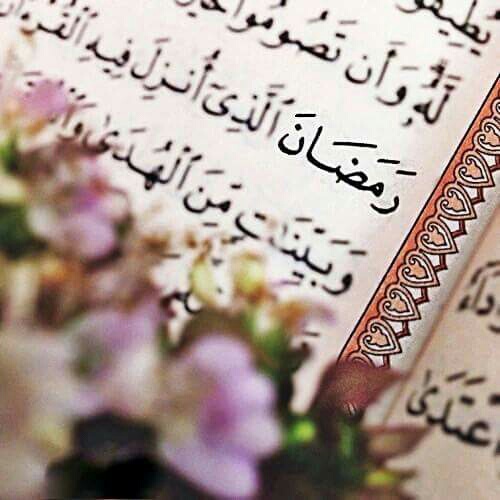 يُطِيقُو
لَّهُۥۚ وَأَن تَصُومُوا۟ خَيْرٌ
رَمَضَانَ ٱلَّذِىٓ أُنزِلَ فِيهِ ٱلْقُرْءَانُ
وَبَيِّنَٰتٍ مِّنَ ٱلْهُدَىٰ
ٱعْتَدَىٰ